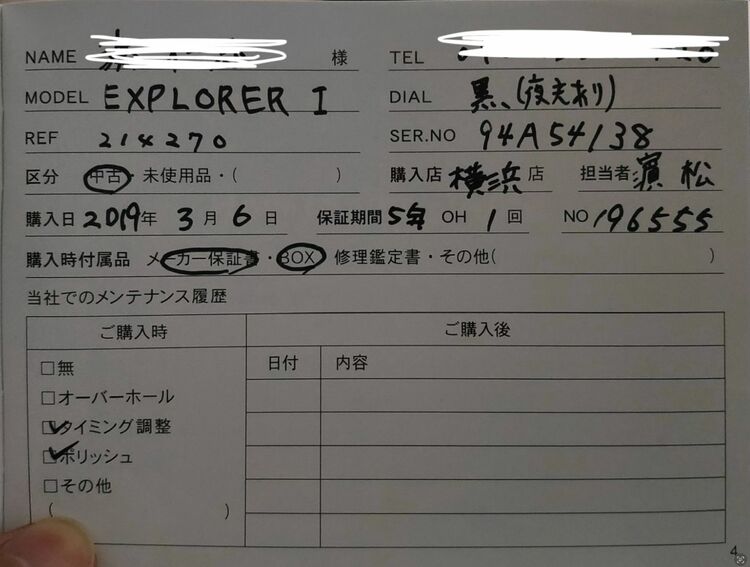 NAME 様 TEL
MODEL EXPLORER I DIAL 黒、(夜光あり)
REF 214270 SER.NO 94A54138
区分 中古・未使用品・( ) 購入店 横浜 店 担当者 濱松
購入日 2019年 3月 6日 保証期間 5年 OH 1回 NO 196555
購入時付属品 メーカー保証書・BOX・修理鑑定書・その他( )
当社でのメンテナンス履歴
ご購入時 ご購入後
□無 日付 内容
□オーバーホール
☑タイミング調整
☑ポリッシュ
□その他
( )
4